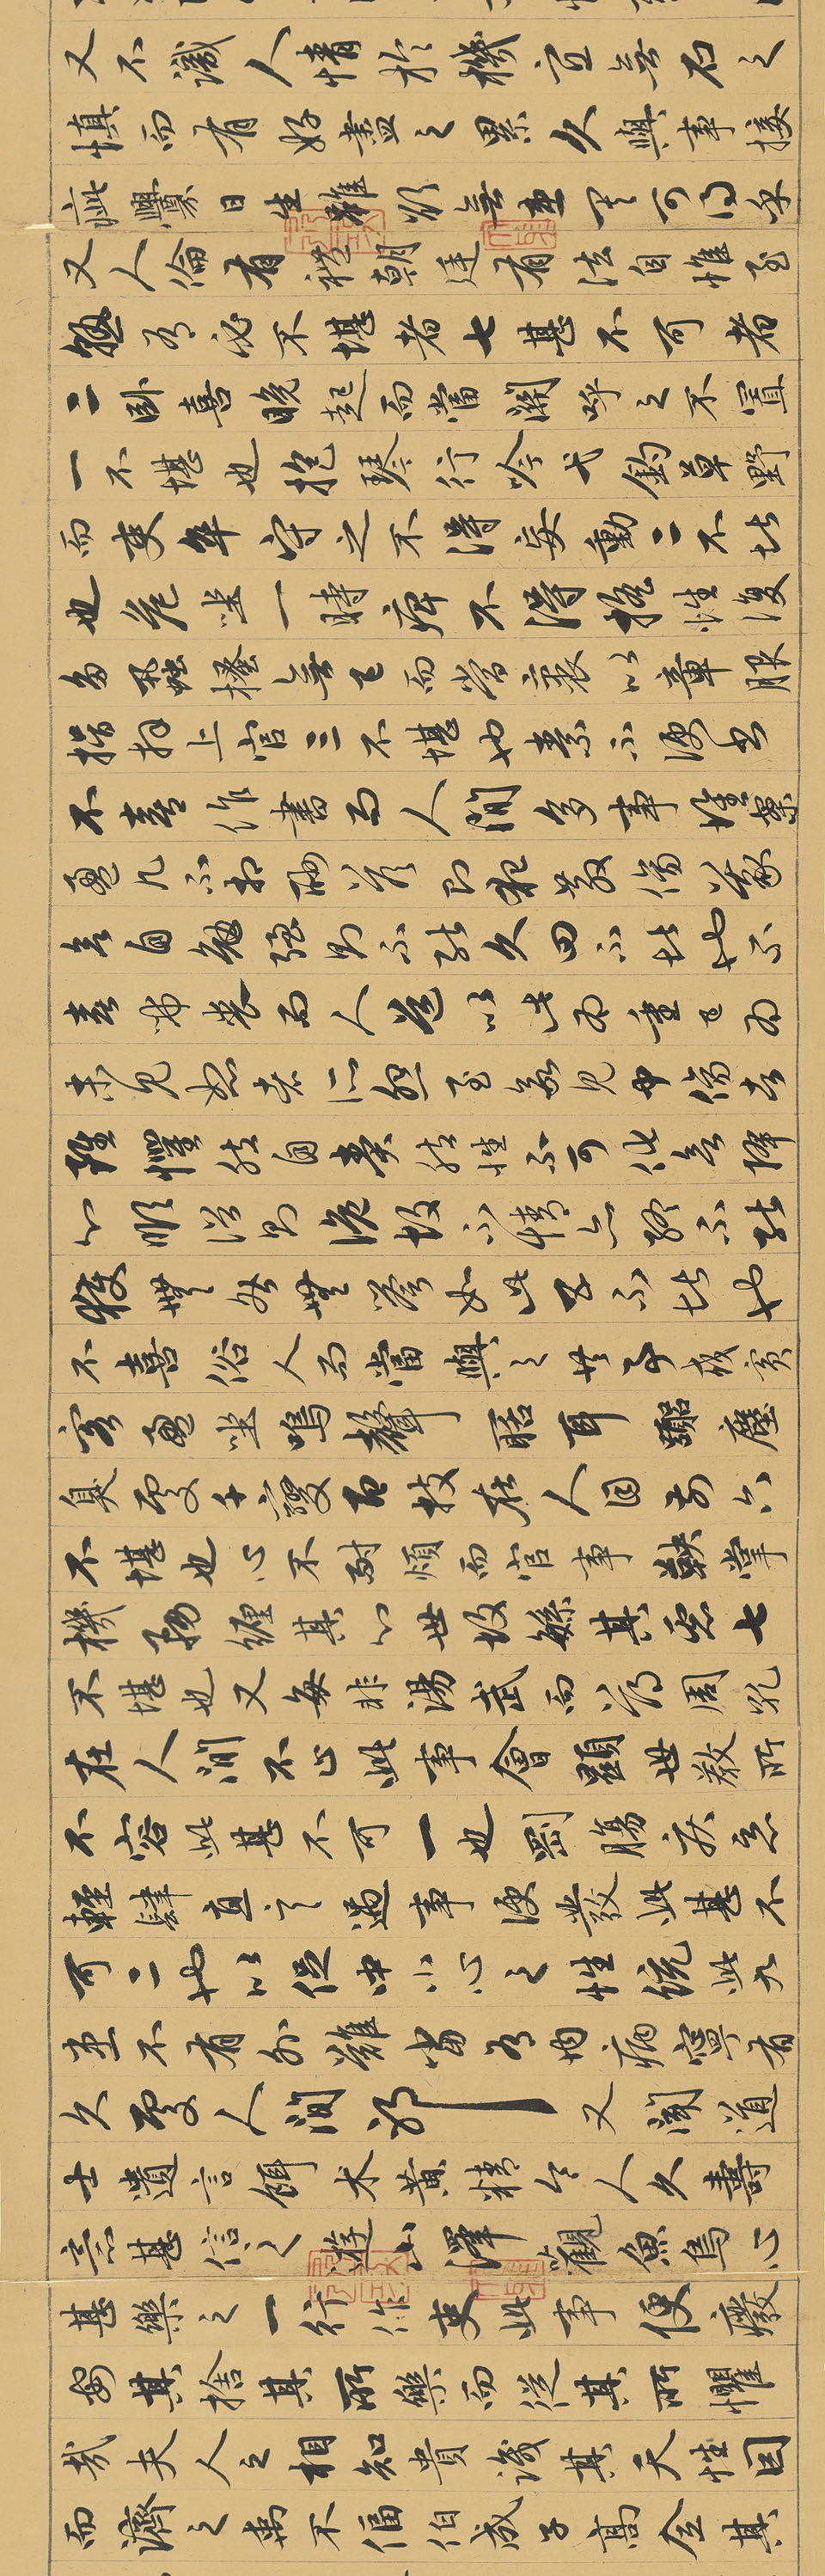 又不識人情於機宜無石之
慎而有好盡之累久與事接
疵釁日生雖欲無患其可得乎
又人倫有禮朝廷有法自惟至
熟有必不堪者七甚不可者
二臥喜晚起而當關呼之不置
一不堪也抱琴行吟弋釣草野
而吏卒守之不得妄動二不堪
也危坐一時痺不得搖性復
多蝨搔無已而當裹以章服
揖拜上官三不堪也素不便書
不喜作書而人間多事堆案
盈几不相酬答則犯教傷義
欲自勉強則不能久四不堪也不
喜弔喪而人道以此為重已為
未見恕者所怨至欲見中傷者
雖懼然自責然性不可化欲降
心順俗則詭故不情亦終不能
獲無咎無譽如此五不堪也
不喜俗人而當與之共事或賓
客盈坐鳴聲聒耳囂塵
臭處千變百技在人目前六
不堪也心不耐煩而官事鞅掌
機務纏其心世故繁其慮七
不堪也又每非湯武而薄周孔
在人間不止此事會顯世教所
不容此甚不可一也剛腸疾惡
輕肆直言遇事便發此甚不
可二也以促中小心之性統此九
患不有外難當有內病寧可
久處人間邪又聞道
士遺言餌朮黃精令人久壽
意甚信之遊山澤觀魚鳥心
甚樂之一行作吏此事便廢
安其捨其所樂而從其所懼
哉夫人之相知貴識其天性因
而濟之禹不偪伯成子高全其